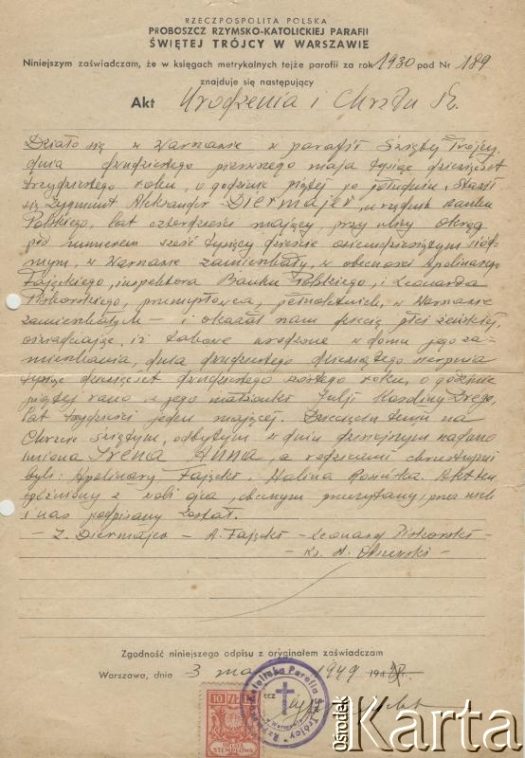 RZECZPOSPOLITA POLSKA
PROBOSZCZ RZYMSKO-KATOLICKIEJ PARAFII
ŚWIĘTEJ TRÓJCY W WARSZAWIE
Niniejszym zaświadczam, że w księgach metrykalnych tejże parafii za rok 1930 pod Nr 189
znajduje się następujący
Akt Urodzenia i Chrztu Św.
Działo się w Warszawie w parafii Świętej Trójcy,
dnia dwudziestego pierwszego maja tysiąc dziewięćset
trzydziestego roku, o godzinie piątej po południu. Stawił
się Zygmunt Aleksander Diermajer, urzędnik Banku
Polskiego, lat czterdzieści mający, przy ulicy Okrąg
pod numerem sześć tysięcy dwieście osiemdziesiątym siód-
mym, w Warszawie zamieszkały, w obecności Apolinarego
Fajęckiego, inspektora Banku Polskiego, i Leonarda
Piotrowskiego, przemysłowca, pełnoletnich, w Warszawie
zamieszkałych — i okazał nam dziecię płci żeńskiej,
oświadczając, iż takowe urodzone w domu jego za-
mieszkania, dnia dwudziestego dziewiątego sierpnia
tysiąc dziewięćset dwudziestego szóstego roku, o godzinie
piątej rano z jego małżonki Julji
lat trzydzieści jeden mającej. Dziecięciu temu na
Chrzcie świętym, odbytym w dniu dzisiejszym nadano
imiona Irena Anna, a rodzicami chrzestnymi
byli: Apolinary Fajęcki i Halina. Akt ten
opóźniony z woli ojca, obecnym przeczytany, przez nich
i nas podpisany został.
— Z. Diermajer — A. Fajęcki — Leonard Piotrowski —
— Ks. A.
Zgodność niniejszego odpisu z oryginałem zaświadczam
Warszawa, dnia 3 1949 194
10 ZŁ
STEMPLOWA
Rzymsko-Katolicka Parafia Św. Trójcy
ośrodek
Karta